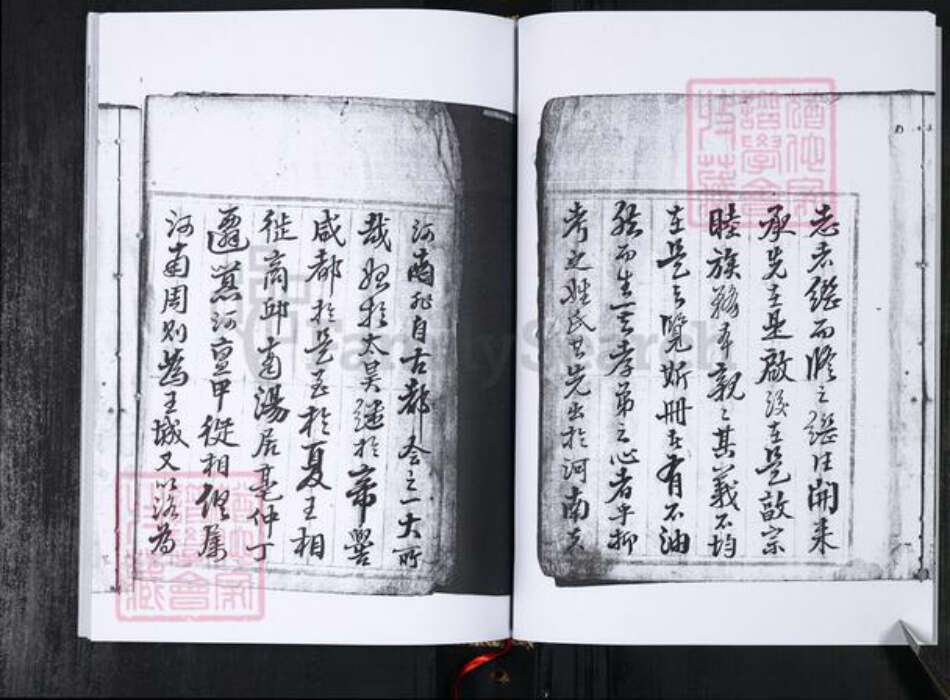 志者繼而修之繼往開来
承先在是啟後在是敬宗
睦族務本親〻其義不均
在是與覽斯冊者有不油
然而生一其孝弟之心者乎抑
考之姓氏其先出於河南夫
河南非自古都會之一大所
哉始於太昊継於帝嚳
咸都於是至於夏王相
徙商邱南湯居亳仲丁
遷嚣河亶甲徙相俱属
河南周則為王城又以洛為
FamilySearch